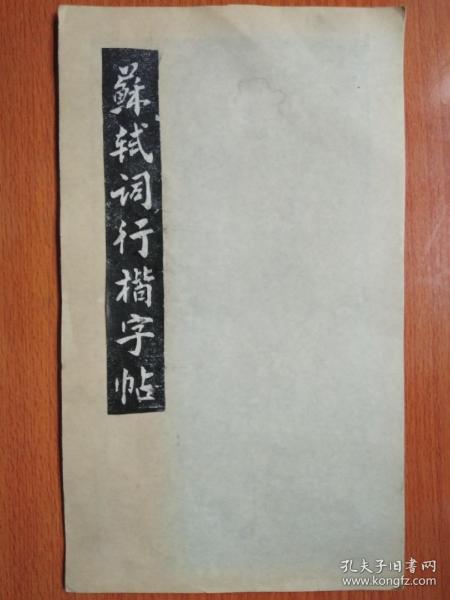 蘇轼词行楷字帖
孔夫子旧书网
www.kongfz.com